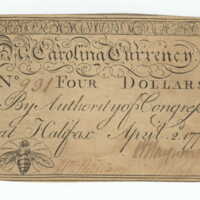 N. Carolina Currency.
No. 931 FOUR DOLLARS
By Authority of Congres
at Halifax April 2. 17